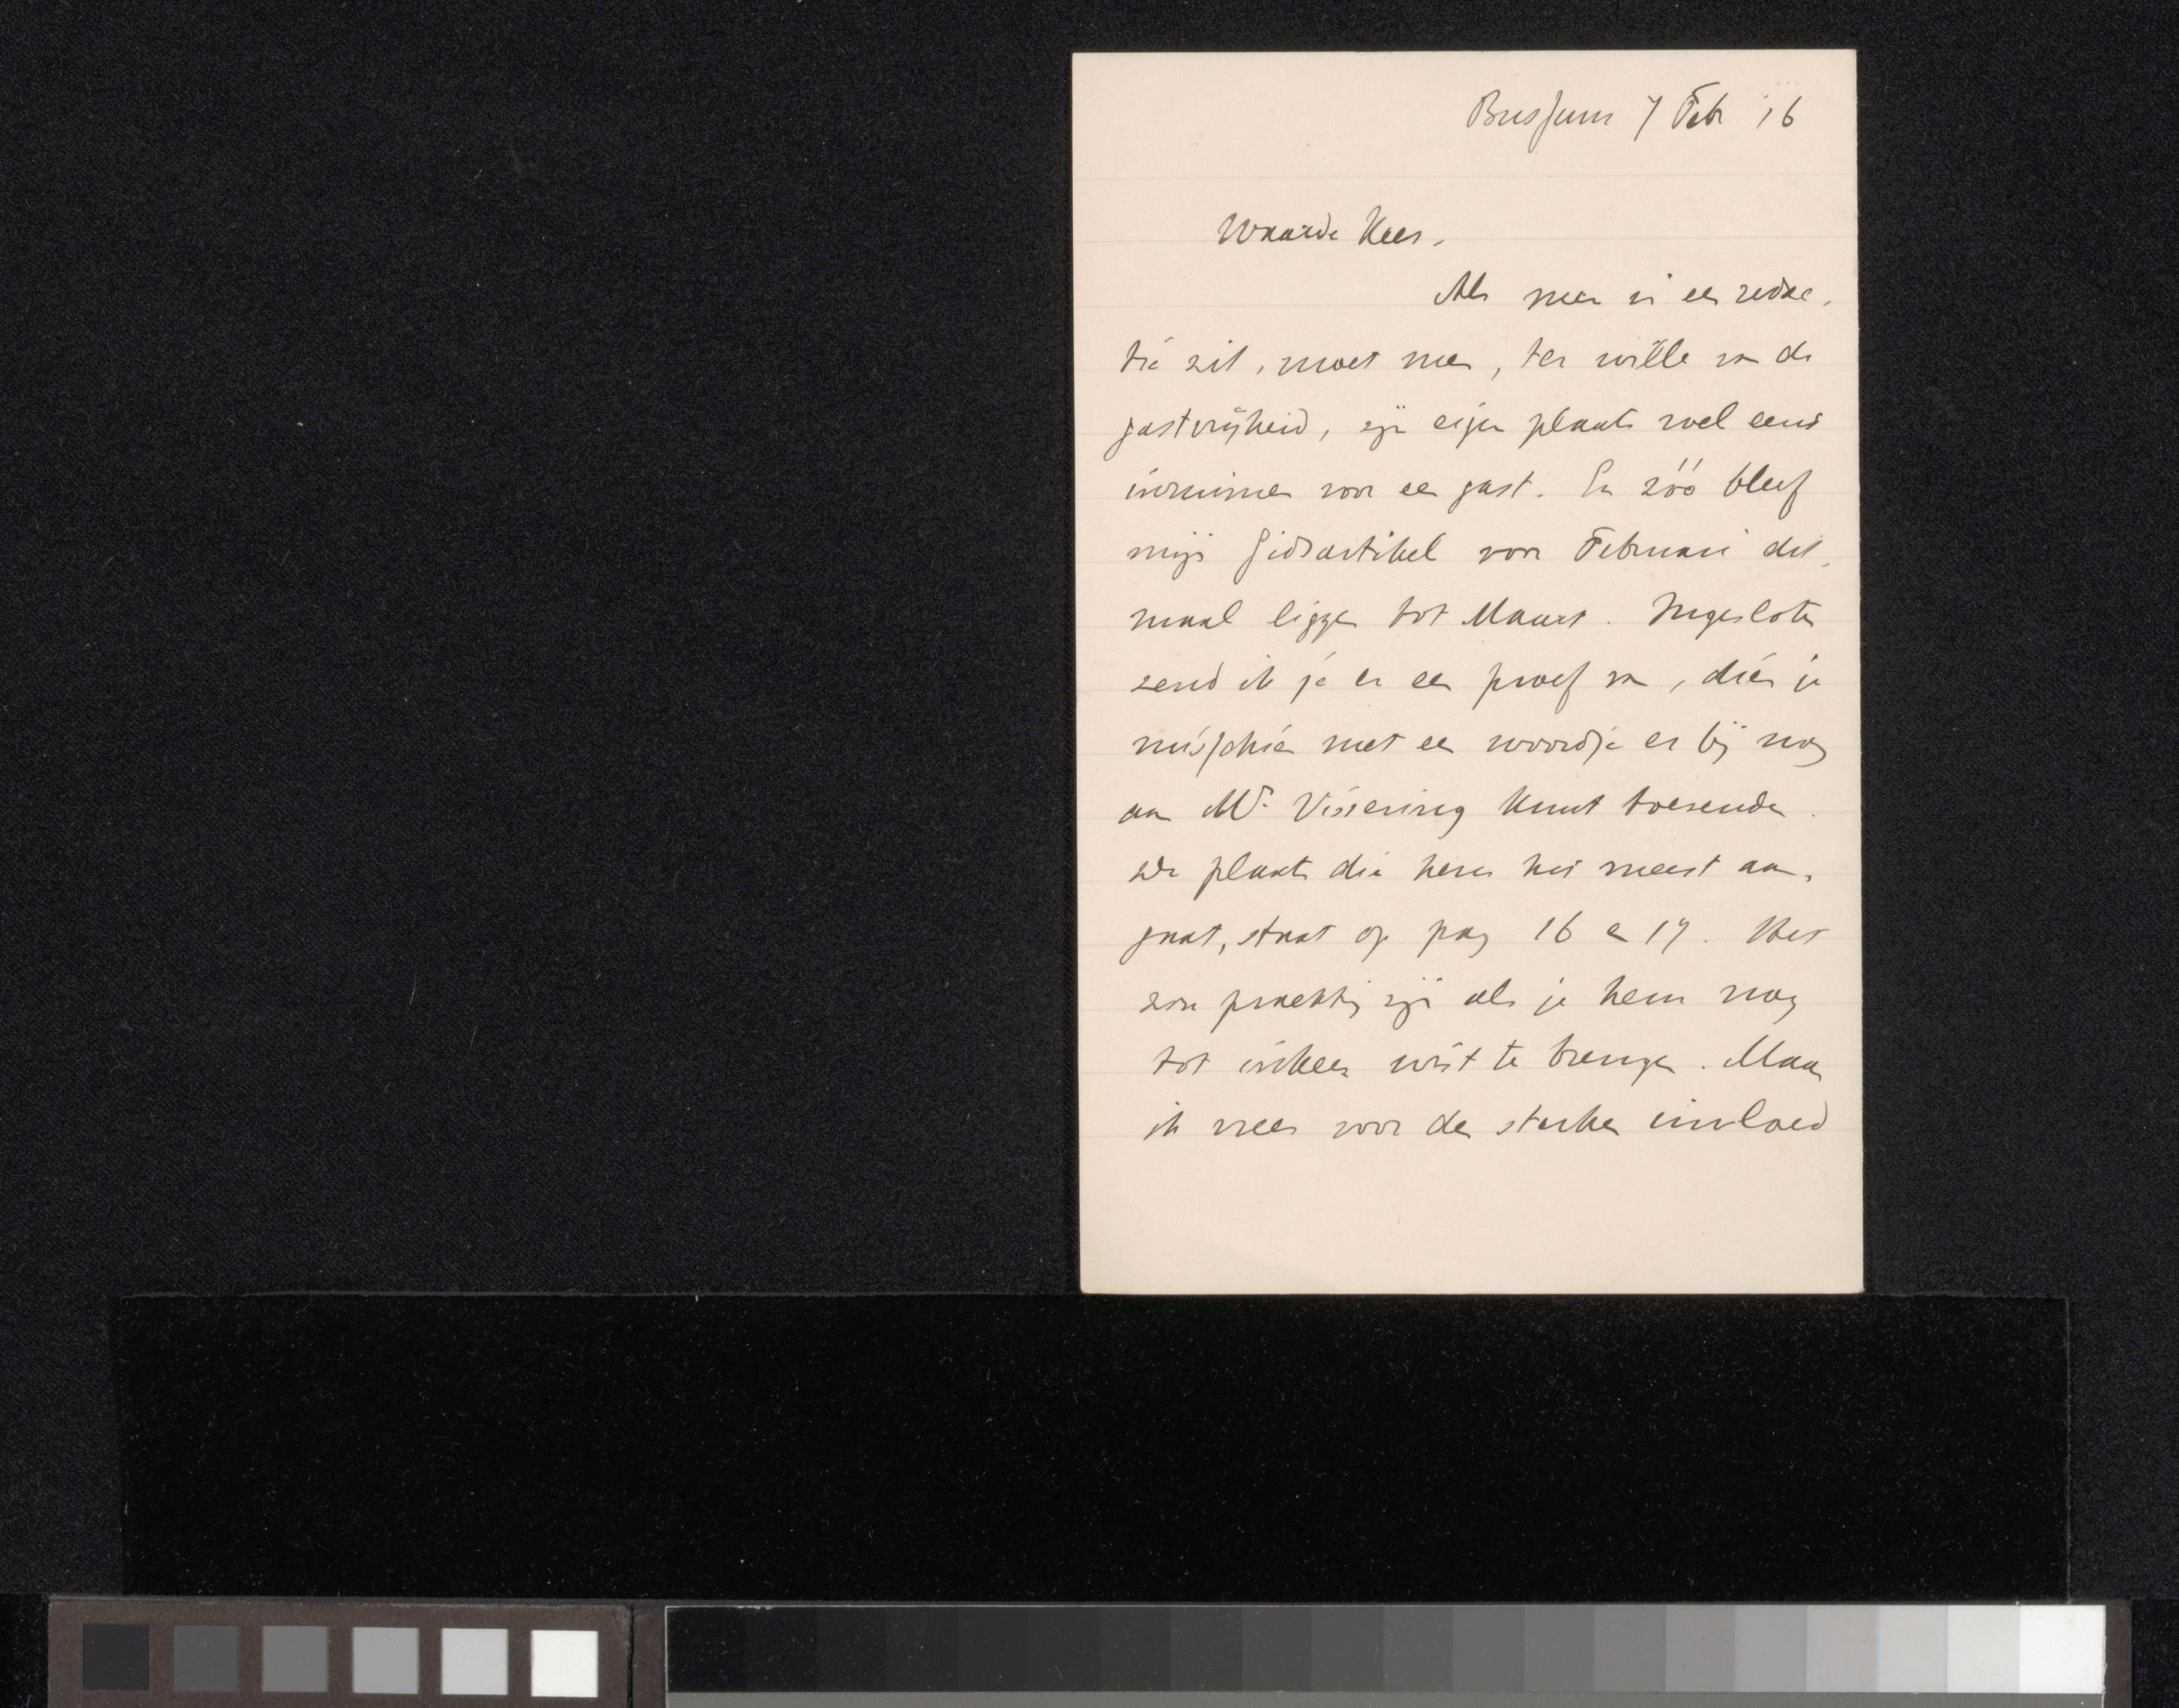 Bussum 7 Feb '16
Waarde Kees,
Als men in een redac-
tie zit, moet men, ter wille van de
gastvrijheid, zijn eigen plaats wel eens
inruimen voor een gast. En zóó bleef
mijn Gidsartikel voor Februari dit-
maal liggen tot Maart. Ingesloten
zend ik je er een proef van, dien je
misschien met een woordje er bij nog
aan Mr. Vissering kunt toezenden.
De plaats die hem het meest aan-
gaat, staat op pag 16 en 17. Het
zou prachtig zijn als je hem nog
tot inkeer wist te brengen. Maar
ik vrees voor de sterken invloed